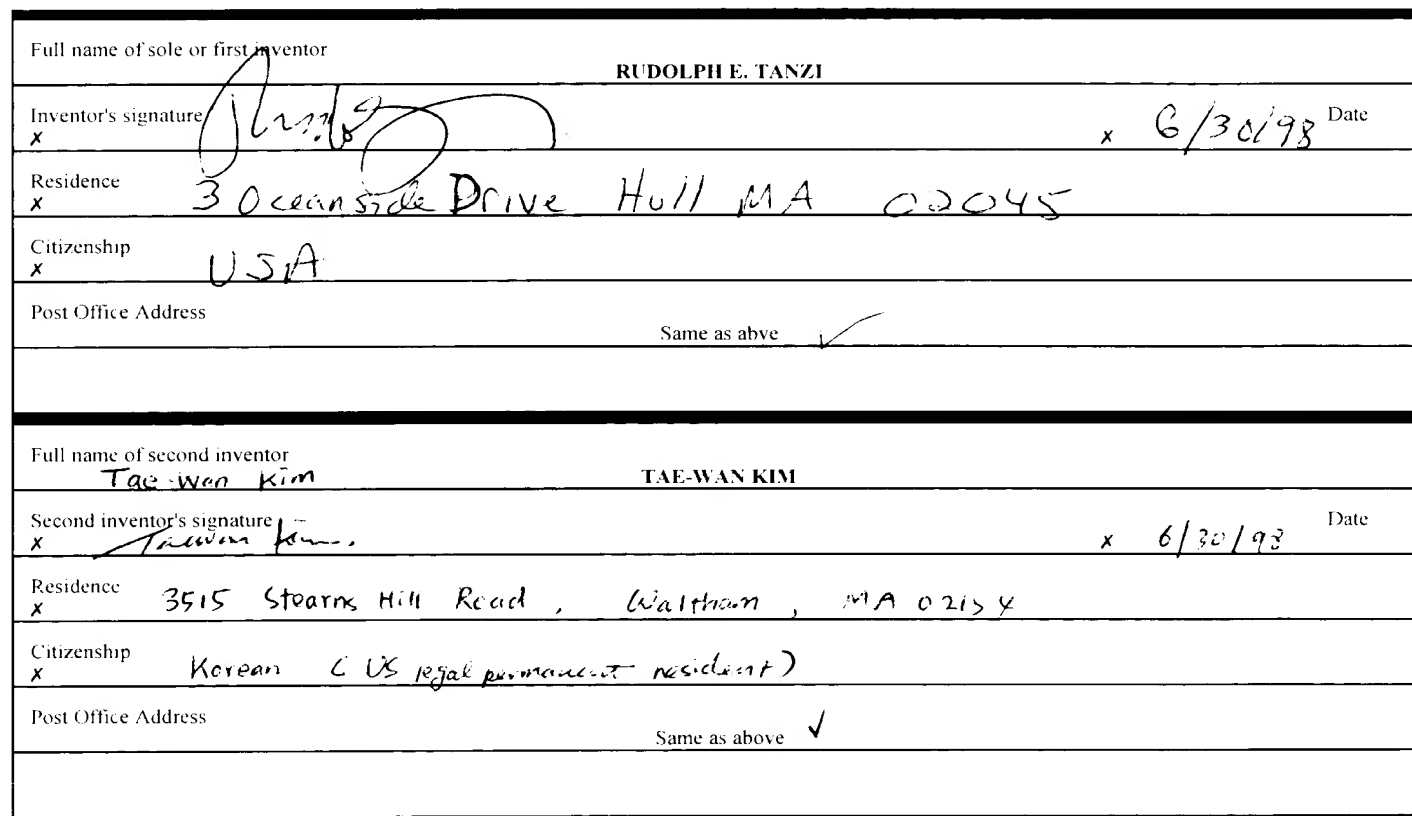 Full name of sole or first inventor
RUDOLPH E. TANZI
Inventor's signature Date
x x 6/30/98
Residence
x 3 Oceanside Drive Hull MA 02045
Citizenship
x USA
Post Office Address
Same as abve ✓
Full name of second inventor
Tae-wan Kim TAE-WAN KIM
Second inventor's signature Date
x Taewan Kim x 6/30/98
Residence
x 3515 Stearns Hill Road, Waltham, MA
Citizenship
x Korean (US legal permanent resident)
Post Office Address
Same as above ✓